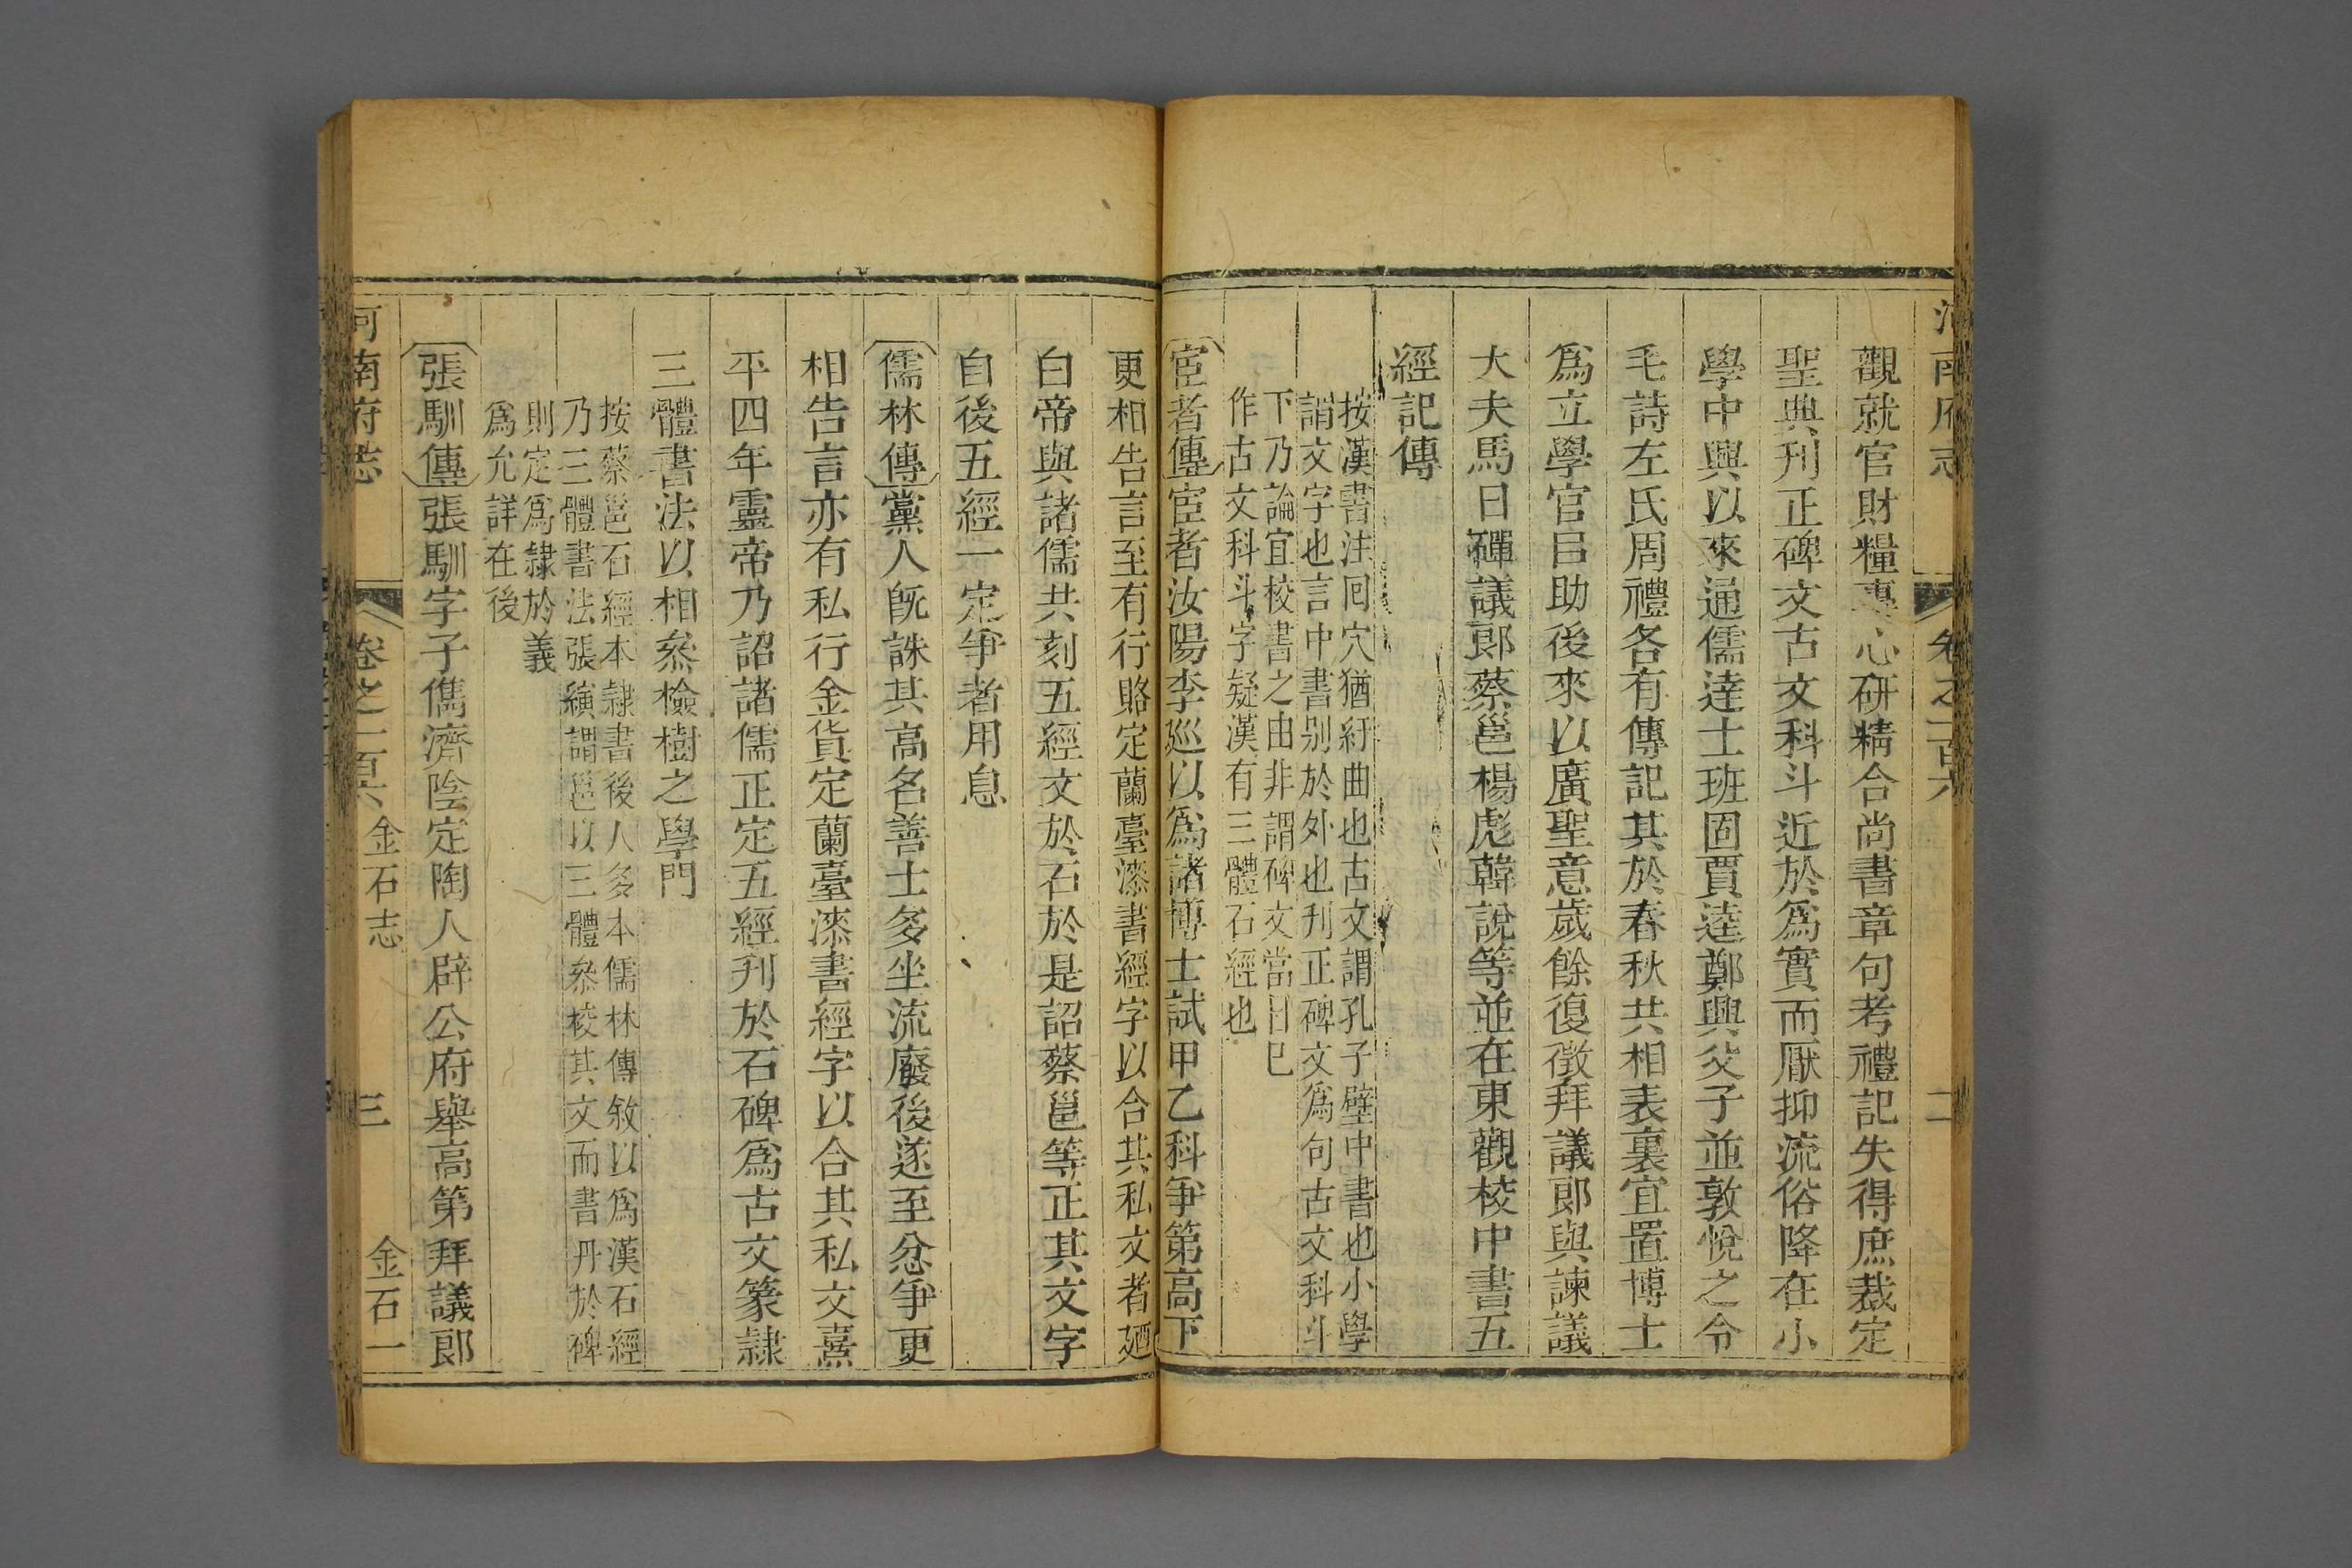 河南府志 卷之一百六 二
觀就官財糧專心研精合尚書章句考禮記失得庶裁定
聖典刋正碑文古文科斗近於爲實而厭抑流俗降在小
學中興以來通儒達士班固賈逵鄭興父子並敦悅之令
毛詩左氏周禮各有傳記其於春秋共相表裏宜置博士
爲立學官㠯助後來以廣聖意歲餘復徵拜議郎與諫議
大夫馬日磾議郎蔡邕楊彪韓說等並在東觀校中書五
經記傳
按漢書注囘穴猶紆曲也古文謂孔子壁中書也小學
謂文字也言中書别於外也刋正碑文爲句古文科斗
下乃論宜校書之由非謂碑文當日已
作古文科斗字疑漢有三體石經也
宦者傳宦者汝陽李巡以爲諸博士試甲乙科爭第高下
更相告言至有行賂定蘭臺漆書經字以合其私文者廼
白帝與諸儒共刻五經文於石於是詔蔡邕等正其文字
自後五經一定爭者用息
儒林傳黨人旣誅其高名善士多坐流廢後遂至忿爭更
相告言亦有私行金貨定蘭臺漆書經字以合其私文熹
平四年靈帝乃詔諸儒正定五經刋於石碑爲古文篆隷
三體書法以相叅檢樹之學門
按蔡邕石經本隷書後人多本儒林傳敘以爲漢石經
乃三體書法張縯謂邕以三體叅校其文而書丹於碑
則定爲隷於義
爲允詳在後
張馴傳張馴字子儁濟陰定陶人辟公府舉高第拜議郎
河南府志 卷之一百六 金石志 三 金石一